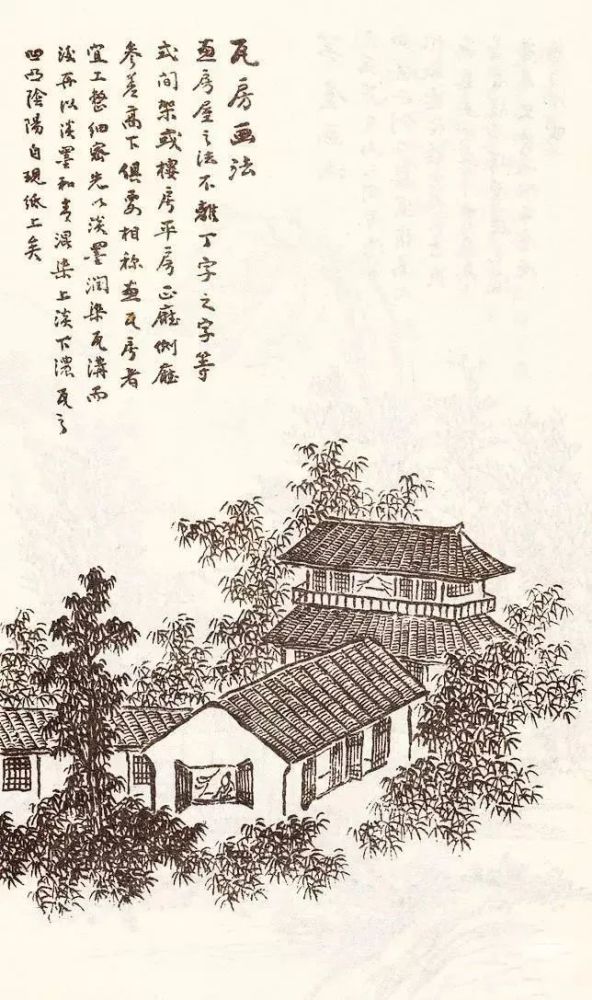 瓦房画法
画房屋之法不離丁字之字等
式间架或樓房平房正廳側廳
参差高下俱要相称画瓦房者
宜工整細密先以淡墨潤染瓦溝而
後再以淡墨和青渲染上淡下濃瓦之
凹凸陰陽自現紙上矣